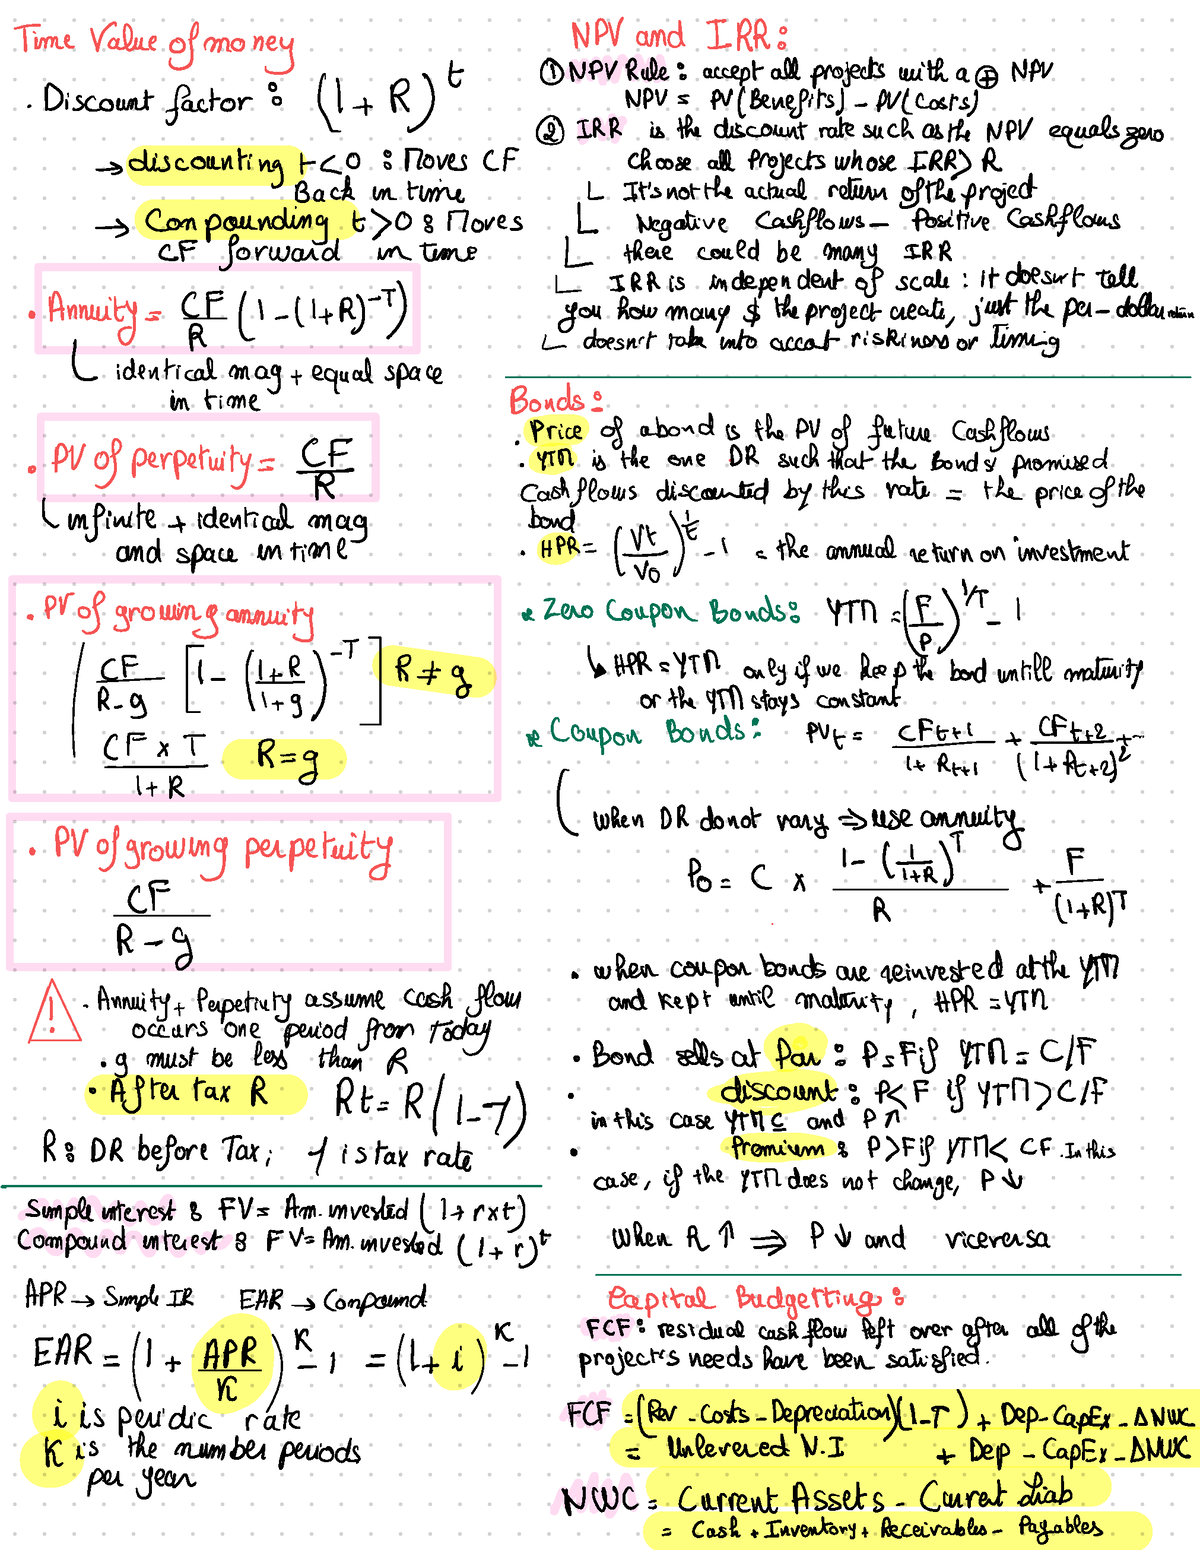 Time Value of money
. Discount factor : (1 + R)^t
→ discounting t<0 : Moves CF
Back in time
→ Compounding t>0 : Moves
CF forward in time
. Annuity = CF/R (1-(1+R)^-T)
identical mag + equal space
in time
. PV of perpetuity = CF/R
infinite + identical mag
and space in time
. PV of growing annuity
CF/R-g [1 - (1+R/1+g)^-T] R ≠ g
CF x T/1+R R=g
. PV of growing perpetuity
CF/R-g
! . Annuity + Perpetuity assume cash flow
occurs one period from today
. g must be less than R
. After tax R Rt = R(1-T)
R: DR before Tax; T is tax rate
Simple interest : FV = Am. invested (1+rxt)
Compound interest : FV= Am. invested (1+r)^t
APR → Simple IR EAR → Compound
EAR = (1 + APR/K)^K - 1 = (1+i)^K - 1
i is peridic rate
K is the number periods
per year
NPV and IRR:
① NPV Rule : accept all projects with a ⊕ NPV
NPV = PV(Benefits) - PV(Costs)
② IRR is the discount rate such as the NPV equals zero
Choose all Projects whose IRR> R
It's not the actual return of the project
Negative Cashflows - Positive Cashflows
there could be many IRR
IRR is independent of scale : it doesn't tell
you how many $ the project create, just the per-dollar return
doesn't take into accout riskiness or Timing
Bonds:
. Price of a bond is the PV of future Cashflows
. YTM is the one DR such that the Bonds' promised
Cash flows discounted by this rate = the price of the
bond
. HPR = (Vt/V0)^1/t - 1 = the annual return on investment
* Zero Coupon Bonds: YTM = (F/P)^1/T - 1
↳ HPR = YTM only if we keep the bond untill maturity
or the YTM stays constant
* Coupon Bonds: PVt = CFt+1/1+Rt+1 + CFt+2/(1+Rt+2)^2 + ..
when DR do not vary ⇒ use annuity
P0 = C x 1-(1/1+R)^T/R + F/(1+R)^T
. when coupon bonds are reinvested at the YTM
and kept until maturity, HPR = YTM
. Bond sells at Par : P=F if YTM = C/F
. discount : P<F if YTM > C/F
in this case YTM and P↗
. Premium : P>F if YTM < CF. In this
case, if the YTM does not change, P ↓
When R ↑ ⇒ P ↓ and viceversa
Capital Budgetting :
FCF: residual cash flow left over after all of the
project's needs have been satisfied.
FCF = (Rev - Costs - Depreciation)(1-T) + Dep - CapEx - ΔNWC
= Unlevered N.I + Dep - CapEx - ΔNWC
NWC = Current Assets - Current Liab
= Cash + Inventory + Receivables - Payables